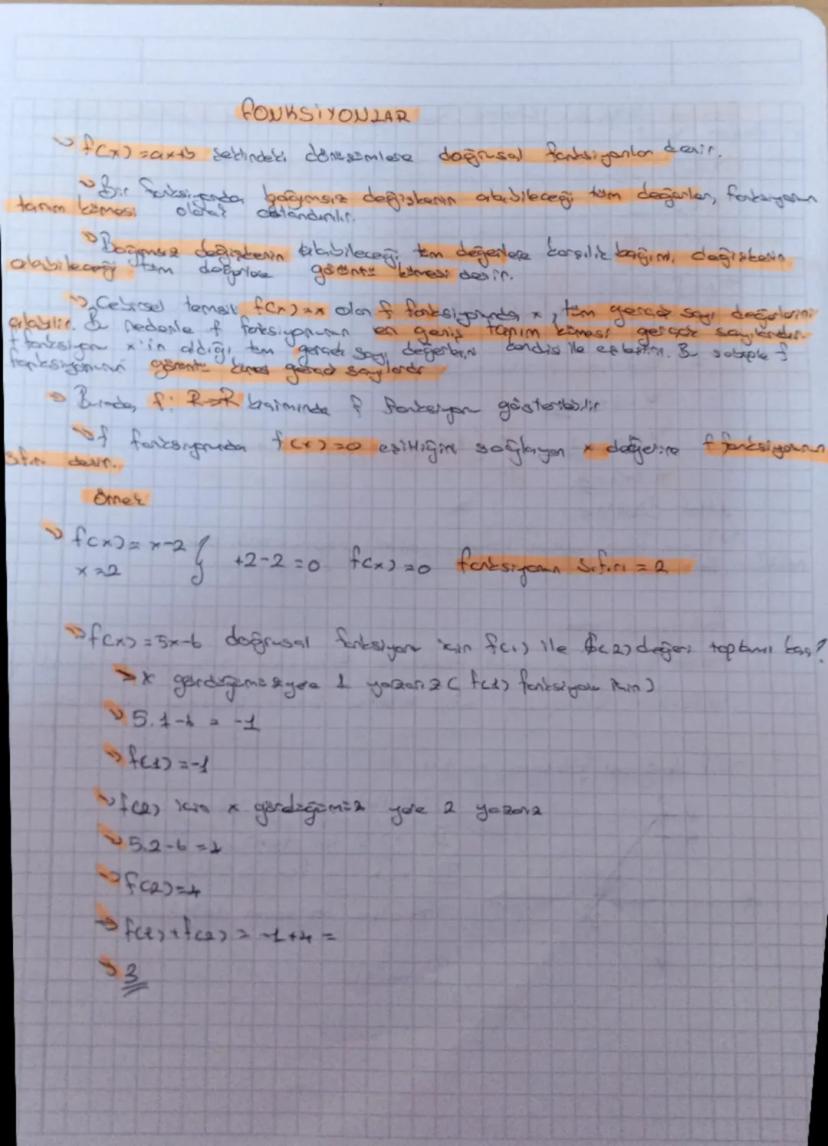 FONKSİYONLAR
f(x) = ax+b şeklindeki dönüşümlere doğrusal fonksiyonlar denir.
Bir fonksiyonda bağımsız değişkenin alabileceği tüm değerler, fonksiyonun
tanım kümesi olarak adlandırılır.
Bağımsız değişkenin alabileceği tüm değerlere karşılık bağımlı değişkenin
alabileceği tüm değerlere görüntü kümesi denir.
Cebirsel temsili f(x) = x olan f fonksiyonunda x, tüm gerçek sayı değerlerini
alabilir. Bu nedenle f fonksiyonunun en geniş tanım kümesi gerçek sayılardır.
f fonksiyon x'in aldığı tüm gerçek sayı değerlerini kendisi ile eşleştirir. Bu sebeple f
fonksiyonunun görüntü kümesi gerçek sayılardır
Burada, f: R→R biçiminde f fonksiyon gösterilebilir
f fonksiyonunda f(x) = 0 eşitliğini sağlayan x değerine f fonksiyonunun
sıfırı denir.
Örnek
f(x) = x-2
x = 2 } +2-2=0 f(x) = 0 fonksiyonun sıfırı = 2
f(x) = 5x-6 doğrusal fonksiyon için f(1) ile f(2) değeri toplamı kaç?
x gördüğümüz yere 1 yazarız ( f(1) fonksiyon için)
5.1-6 = -1
f(1) = -1
f(2) için x gördüğümüz yere 2 yazarız
5.2-6 = 4
f(2) = 4
f(1) + f(2) = -1+4 =
3